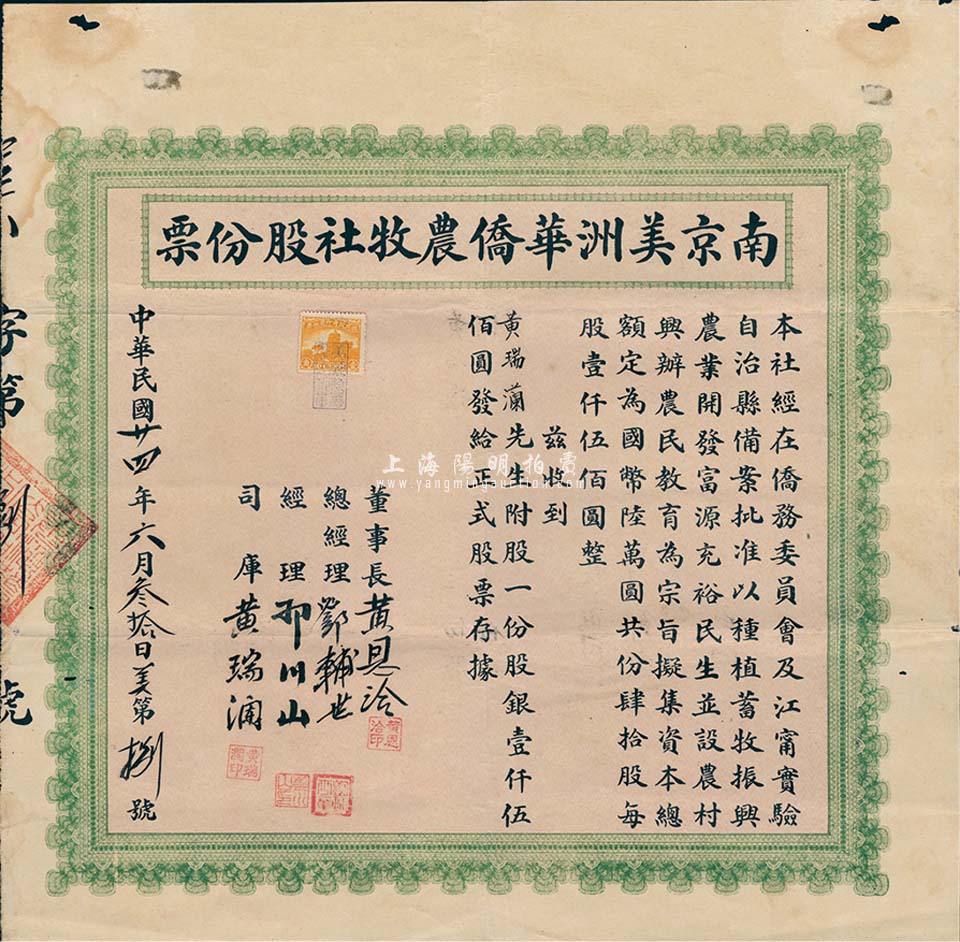 南京美洲華僑農牧社股份票
本社經在僑務委員會及江甯實驗
自治縣備案批准以種植蓄牧振興
農業開發富源充裕民生並設農村
興辦農民教育為宗旨擬集資本總
額定為國幣陸萬圓共份肆拾股每
股壹仟伍佰圓整
茲收到
黃瑞瀾先生附股一份股銀壹仟伍
佰圓發給正式股票存據
董事長黃恩洽
總經理鄧輔世
經理 川山
司庫黃瑞瀾
中華民國廿四年六月叁拾日美第捌號
字第捌號
上海陽明拍賣
www.yangmingauction.com